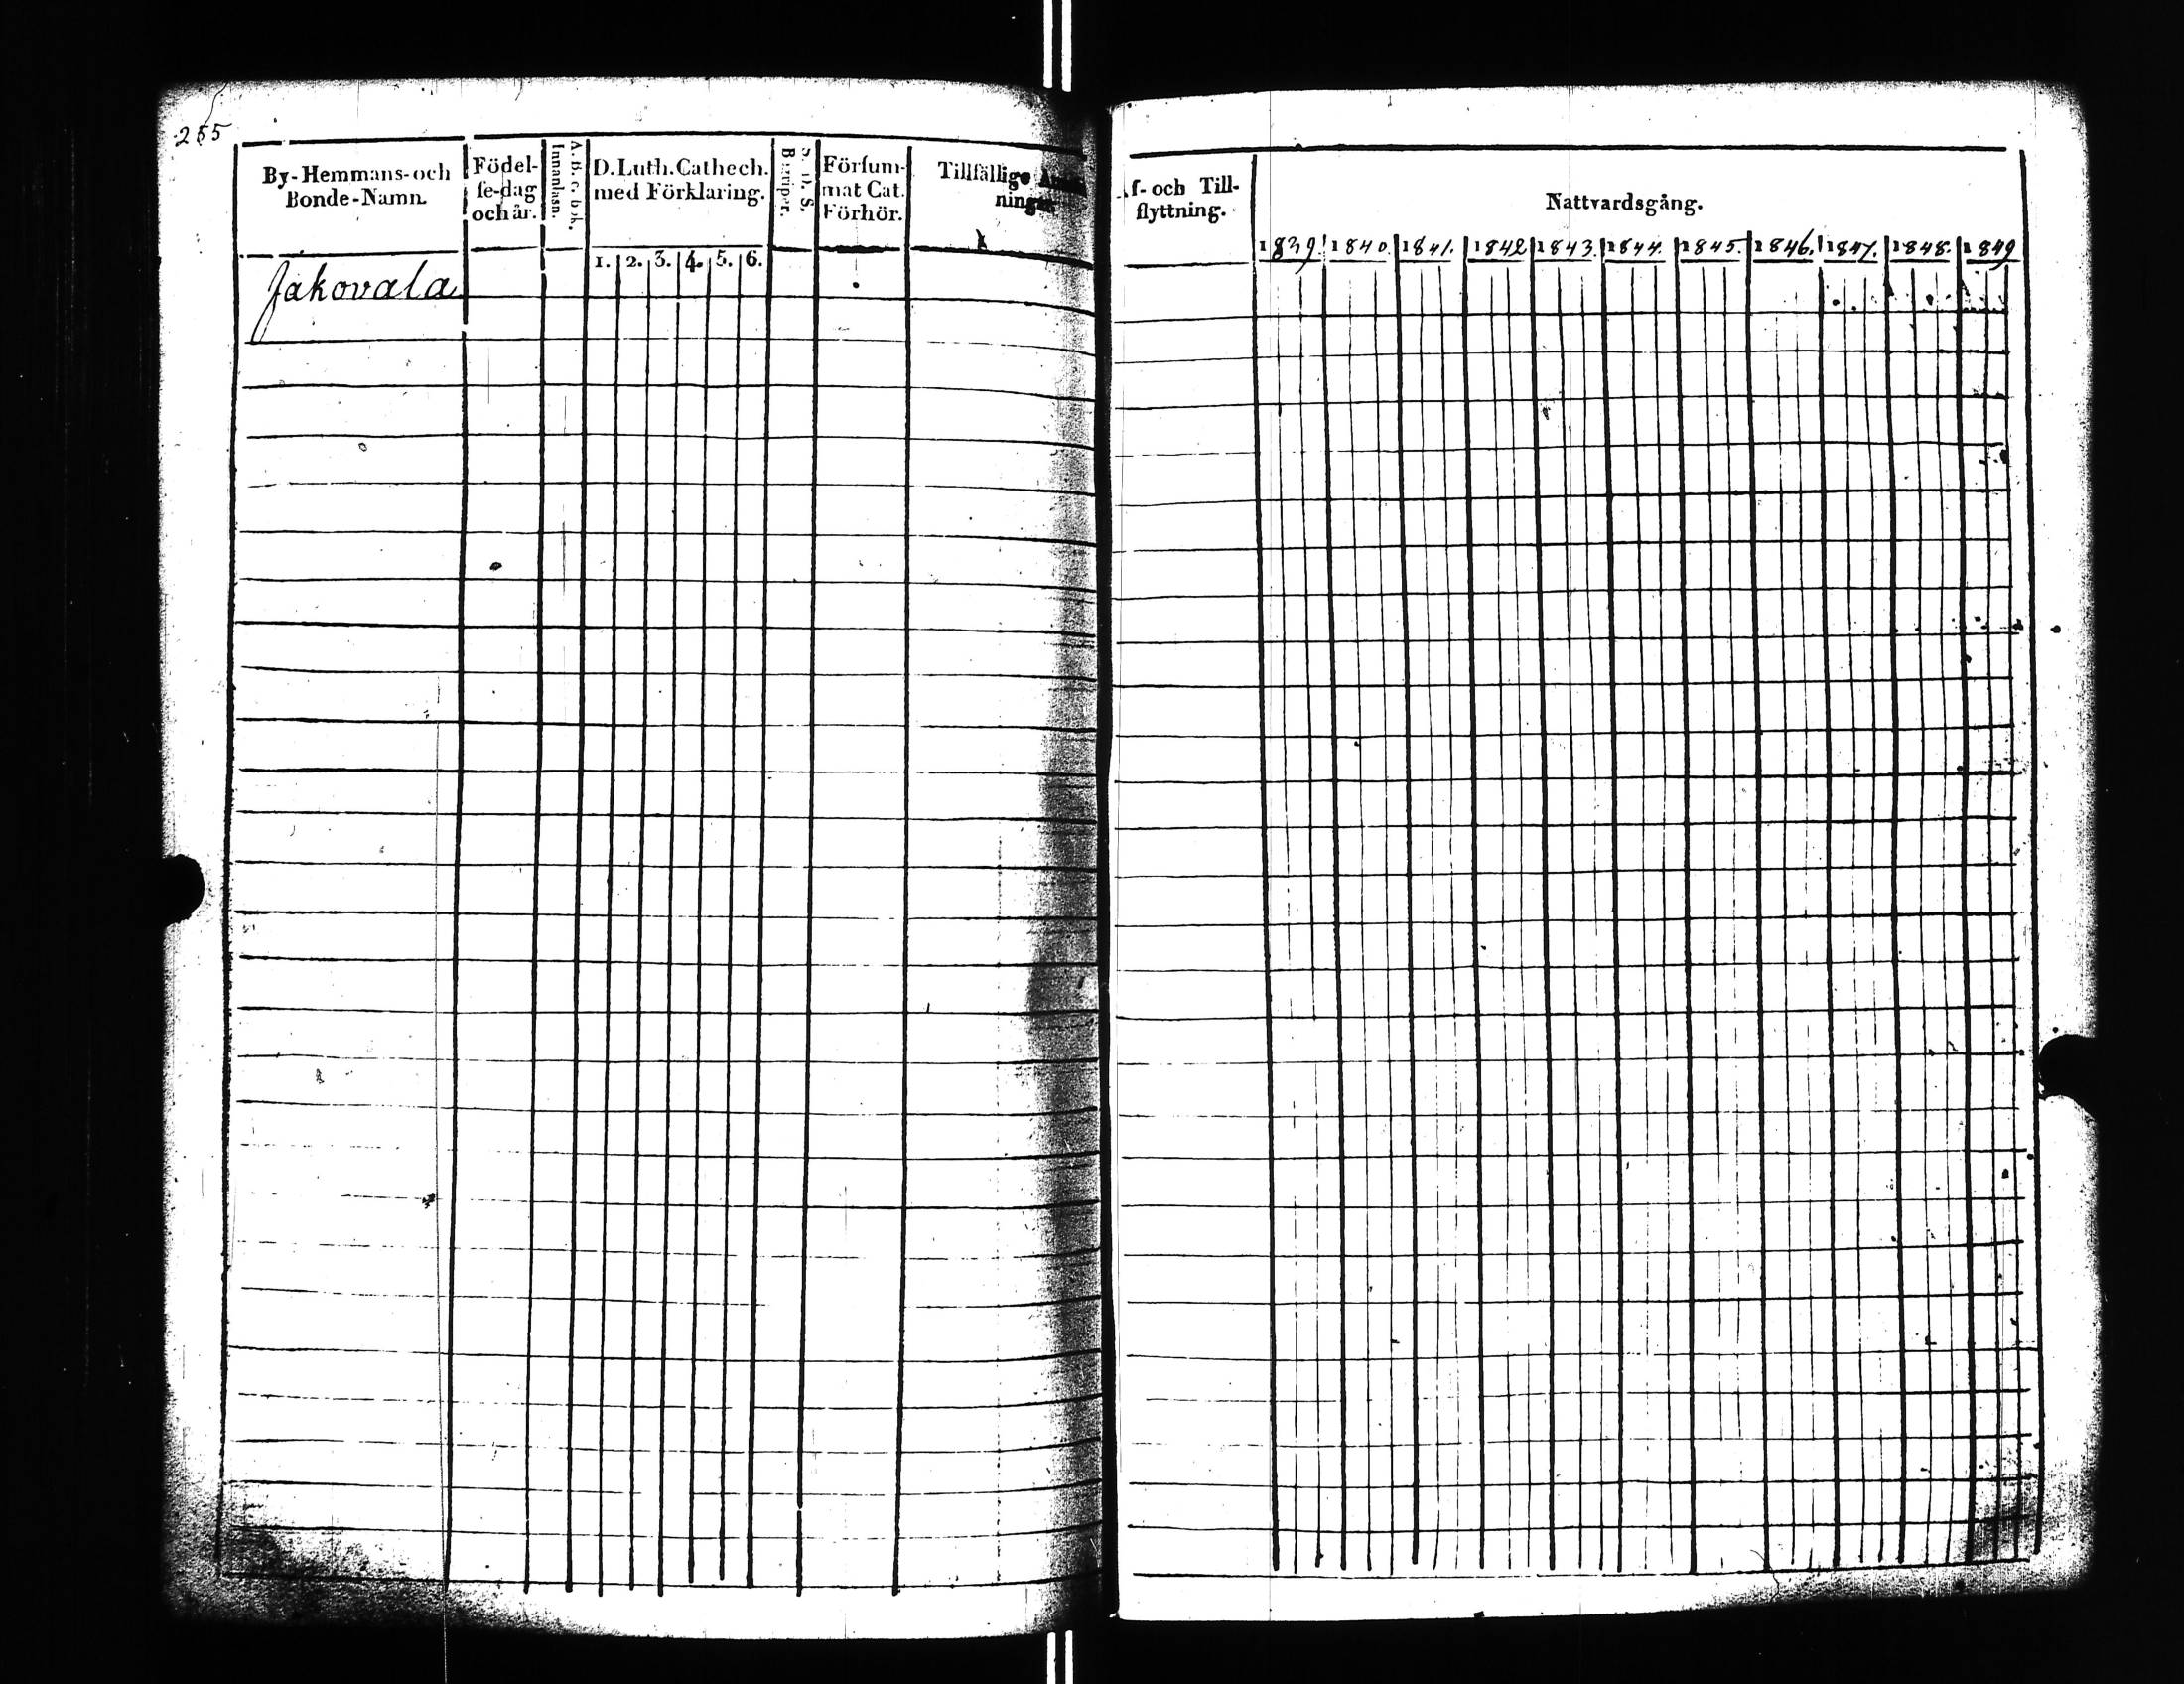 255
By-Hemmans-och
Bonde-Namn.
Födel-
se-dag
och år.
A. B. C. bok.
Innanläsn.
D. Luth. Cathech.
med Förklaring.
1. 2. 3. 4. 5. 6.
Försum-
mat Cat.
Förhör.
Tillfällige
Jakovala
f- och Till-
flyttning.
Nattvardsgång.
1839. 1840. 1841. 1842 1843. 1844. 1845. 1846. 1847. 1848. 1849